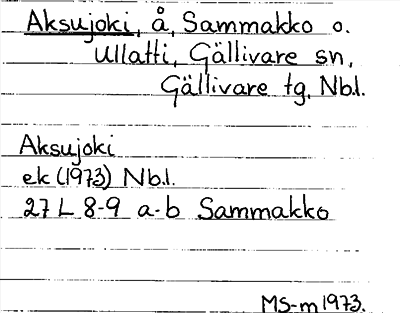 Aksujoki, å, Sammakko o.
Ullatti, Gällivare sn,
Gällivare tg, Nb.l.
Aksujoki
ek (1973) Nb.l.
27 L 8-9 a-b Sammakko
MS-m 1973.